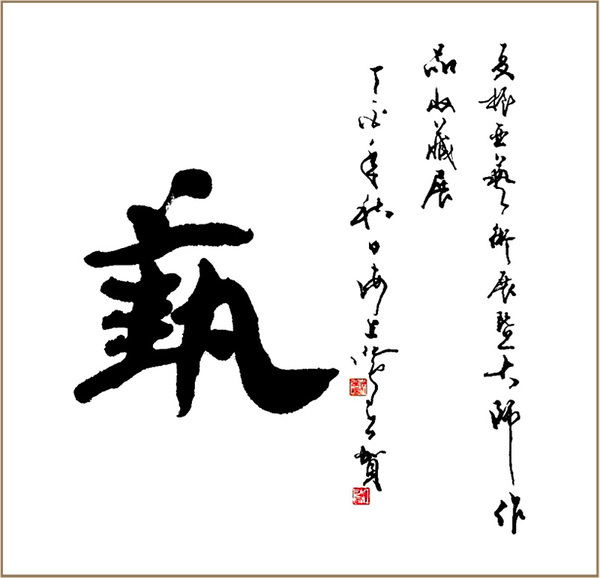 夏振亞藝術展暨大師作
品收藏展
丁酉年秋日海上賀
藝